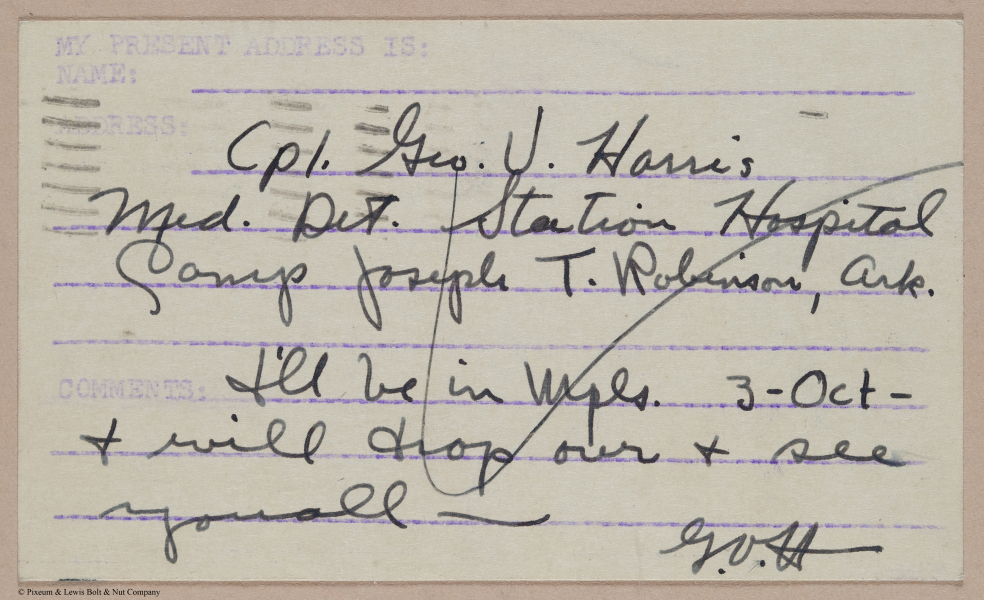 MY PRESENT ADDRESS IS:
NAME:
ADDRESS:
Cpl. Geo. V. Harris
Med. Det. Station Hospital
Camp Joseph T. Robinson, Ark.
COMMENTS: I'll be in Mpls. 3-Oct-
+ will drop over + see
you all —
G.V.H
© Pixeum & Lewis Bolt & Nut Company